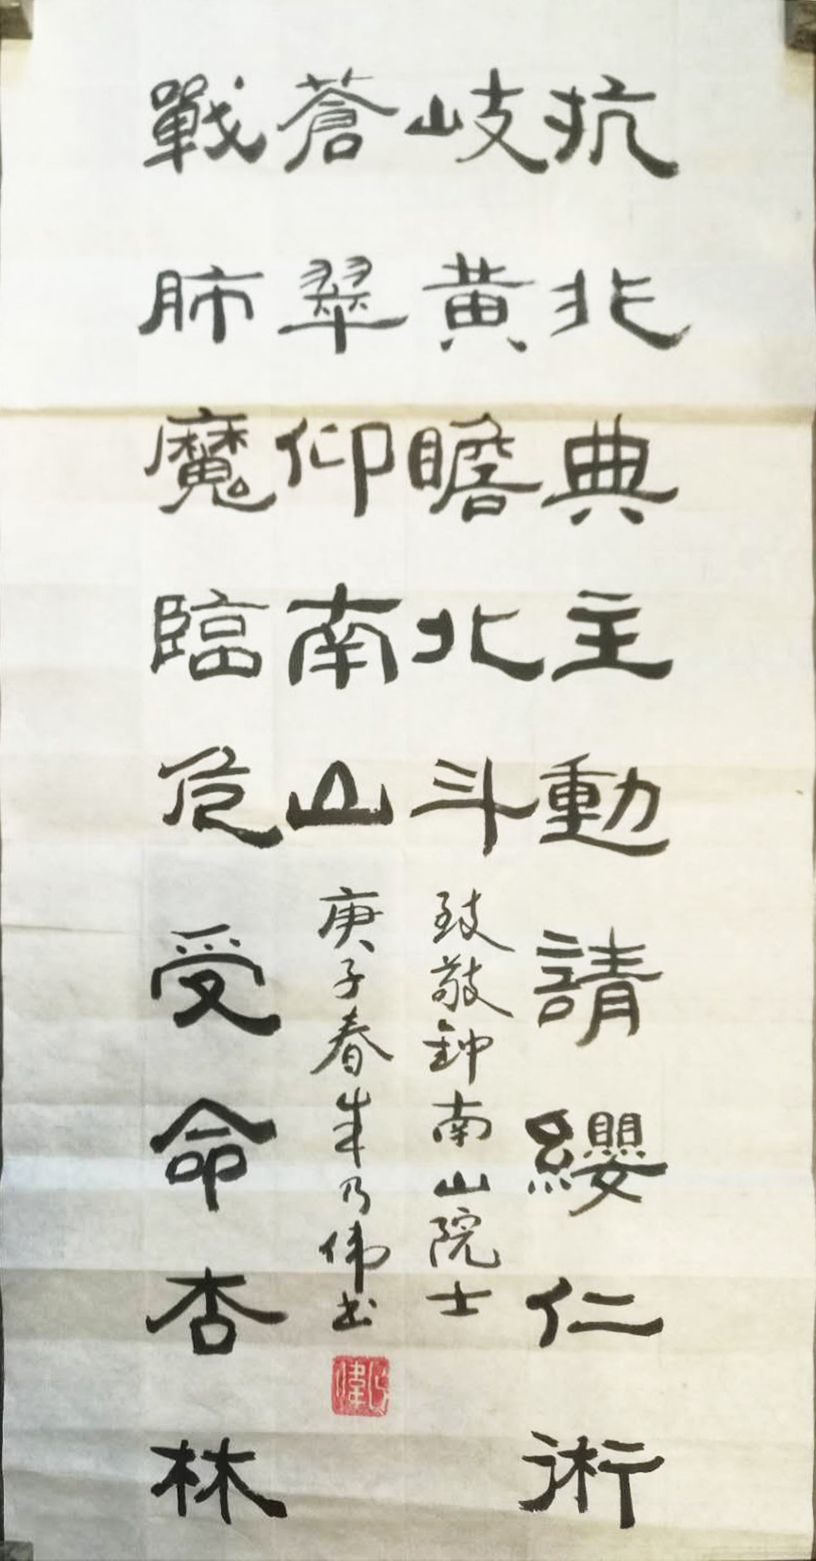 抗非典主動請纓仁術
岐黄瞻北斗
致敬钟南山院士
戰肺魔臨危受命杏林
蒼翠仰南山
庚子春乃伟书
乃偉